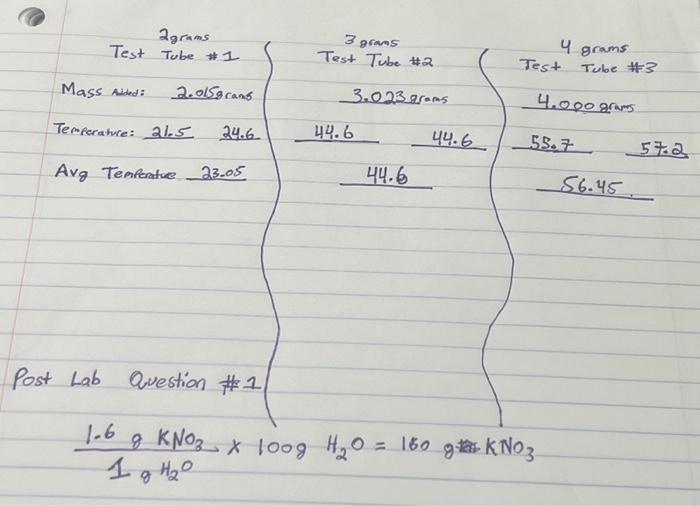 2grams
Test Tube #1
Mass Added: 2.015grams
Temperature: 21.5 24.6
Avg Temperature 23.05
3 grams
Test Tube #2
3.023grams
44.6 44.6
44.6
4 grams
Test Tube #3
4.000grams
55.7 57.2
56.45
Post Lab Question #1
1.6 g KNO3 x 100g H2O = 160 g KNO3
1 g H2O